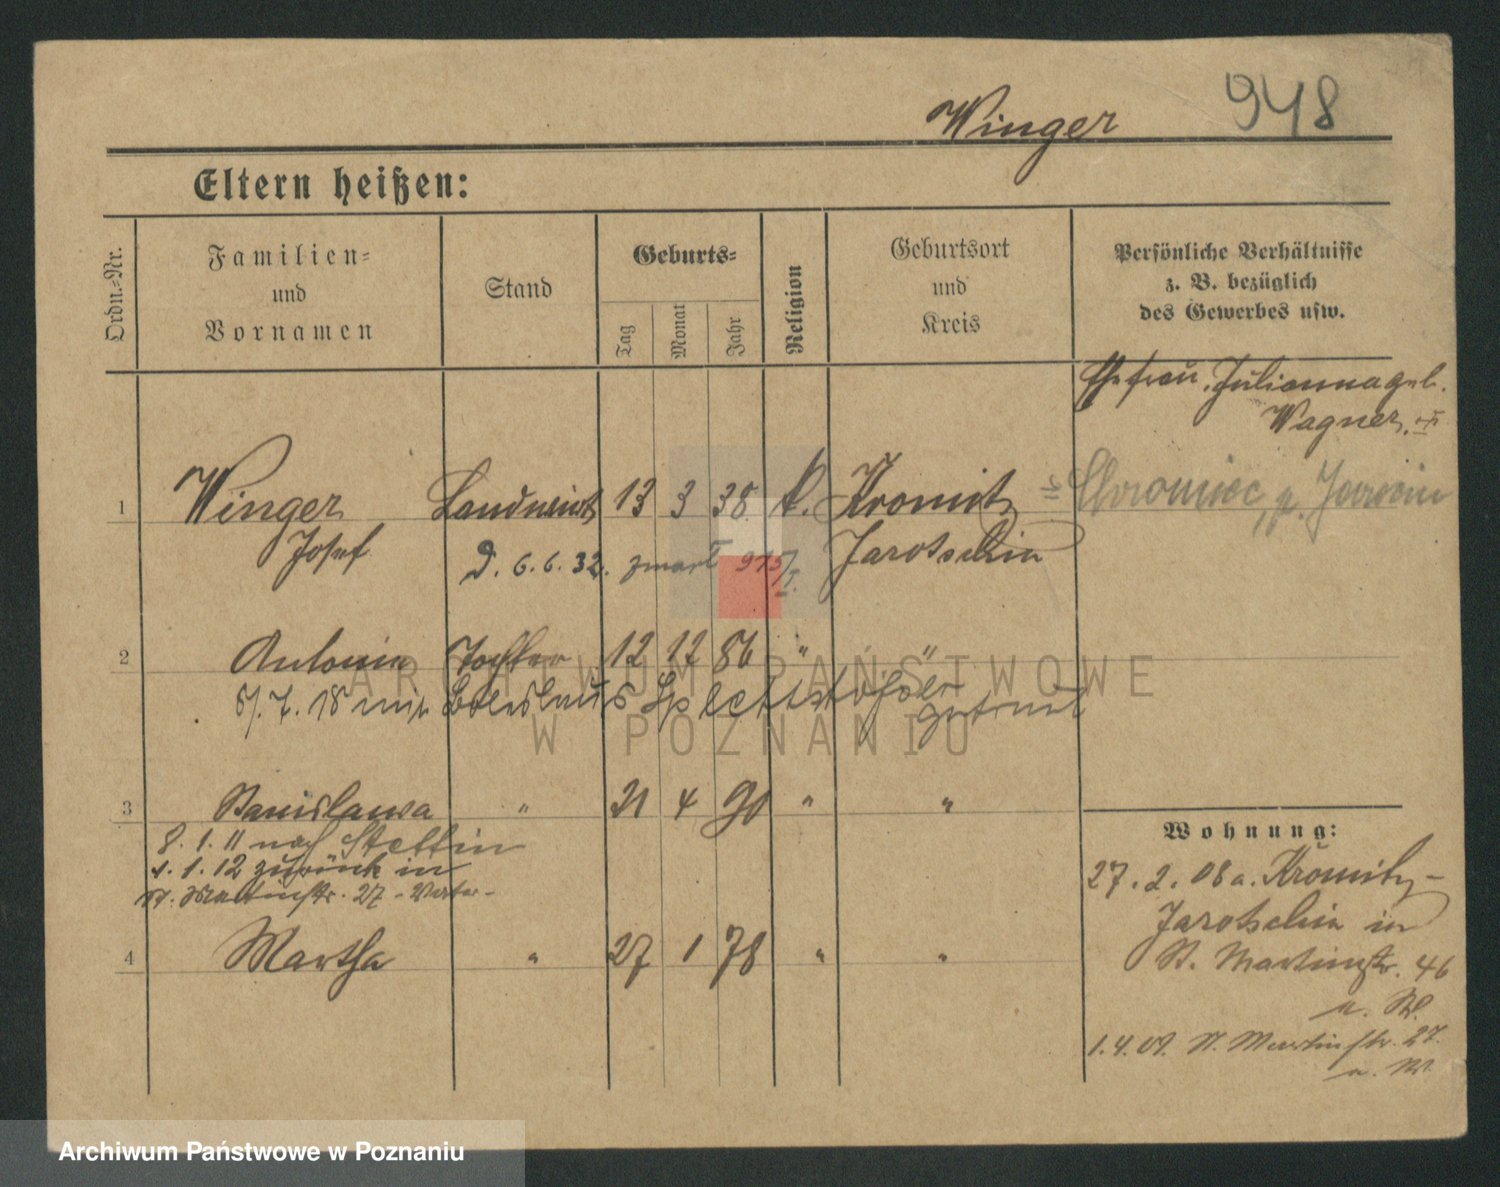 Winger 948
Eltern heißen:
Ordn.-Nr.
Familien-
und
Vornamen
Stand
Geburts-
Tag
Monat
Jahr
Religion
Geburtsort
und
Kreis
Persönliche Verhältnisse
z. B. bezüglich
des Gewerbes usw.
Ehefrau Julianna geb.
Wagner
1 Winger Landwirt 13 3 38 k. Kromitz
Josef Jarotschin
D. 6.6.32. zmarł
2 Antonin Tochter 12 12 86 " "
5/7. 18 mit Boleslaus getraut
3 Stanislawa " 21 4 90 " "
8. 1. 11 nach Stettin
1. 1. 12 zurück in
St. Martinstr. 27 - Vater -
4 Martha " 27 1 78 " "
Wohnung:
27. 2. 08 a. Kromitz -
Jarotschin in
St. Martinstr. 46
1.4.09. St. Martinstr. 27.
ARCHIWUM PAŃSTWOWE
W POZNANIU
Archiwum Państwowe w Poznaniu